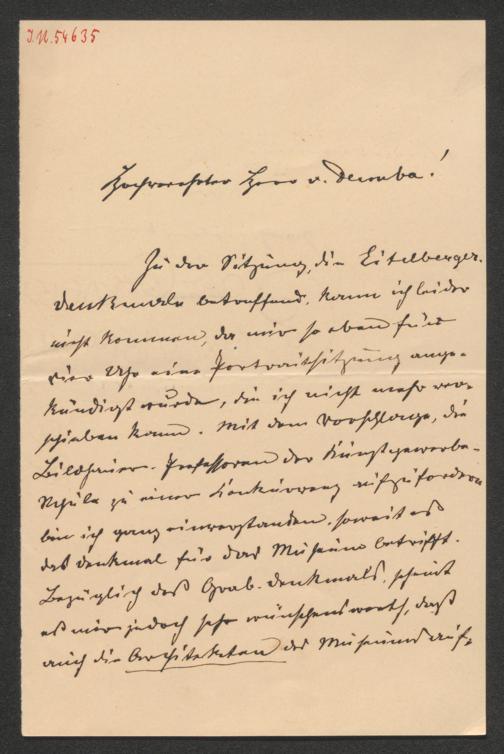 J.N. 54635
Hochverehrter Herr v. Dumba!
Zu der Sitzung, die Eitelberger-
denkmale betreffend, kann ich leider
nicht kommen, da mir so eben für
vier Uhr eine Portraitsitzung ange-
kündigt wurde, die ich nicht mehr ver-
schieben kann. Mit dem Vorschlage, die
Bildhauer-Professoren der Kunstgewerbe-
Schule zu einer Konkurrenz aufzufordern
bin ich ganz einverstanden, soweit es
das Denkmal für das Museum betrifft.
Bezüglich des Grab-Denkmals, scheint
es mir jedoch sehr wünschenswerth, daß
auch die Architekten des Museums auf-